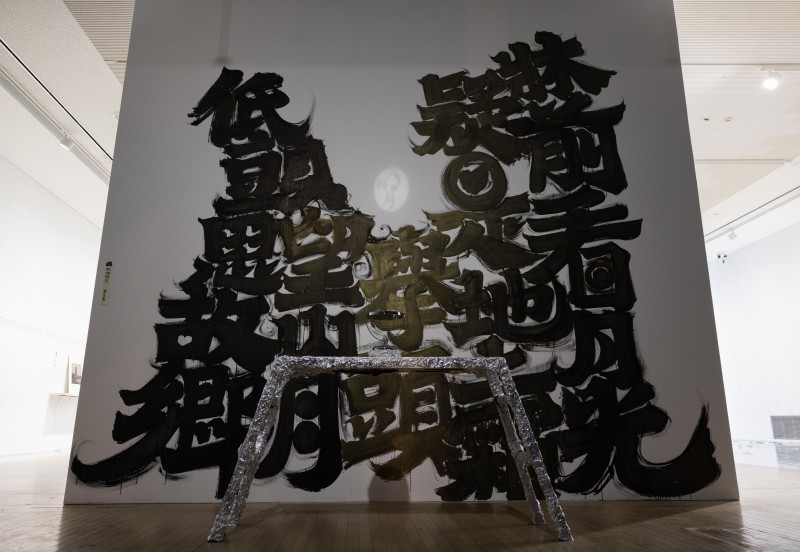 牀前看月光
疑是地上霜
舉頭望山月
低頭思故鄉